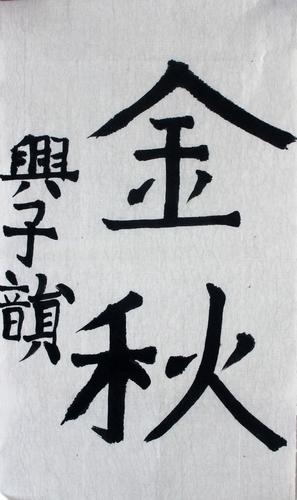 金秋
興子韻